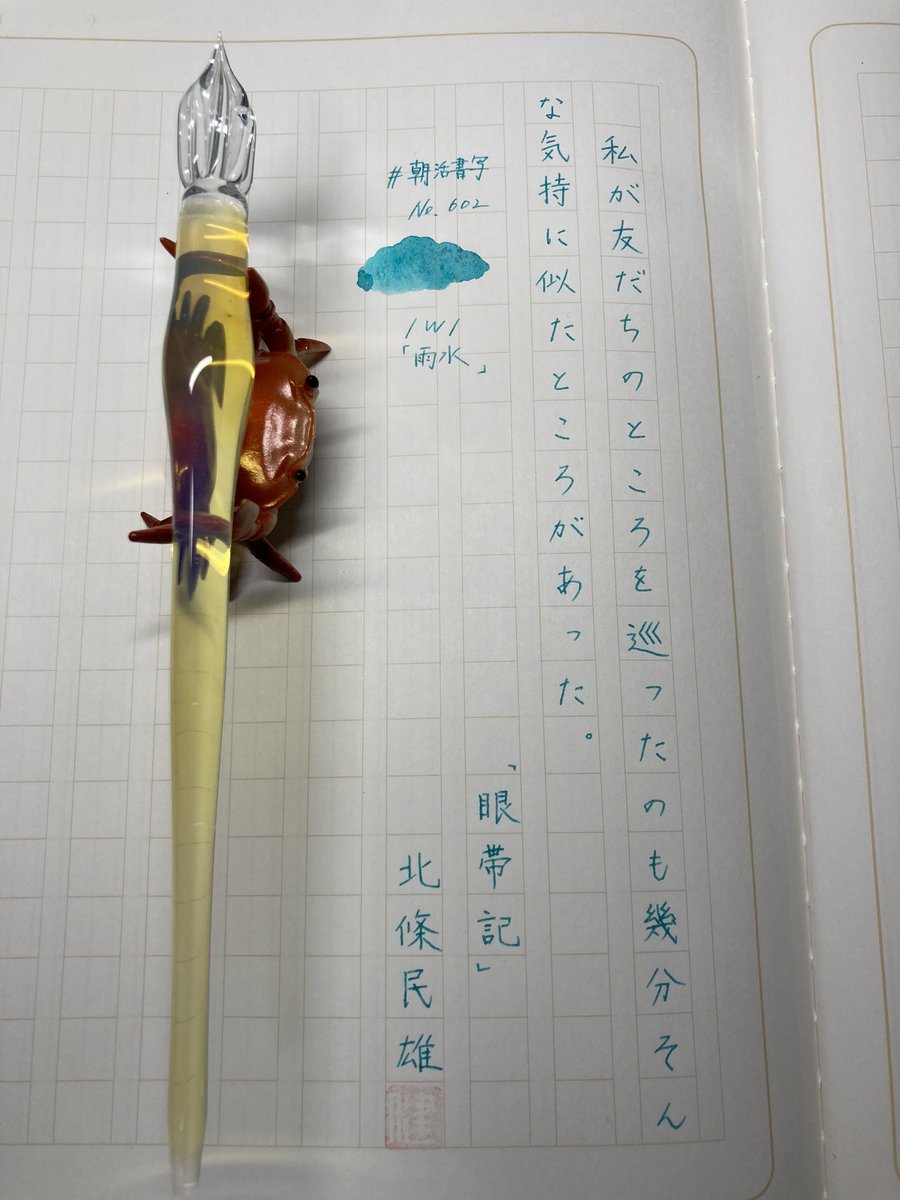 私が友だちのところを巡ったのも幾分そん
な気持に似たところがあった。
「眼帯記」
北條民雄
#朝活書写
No. 602
/W/
「雨水」